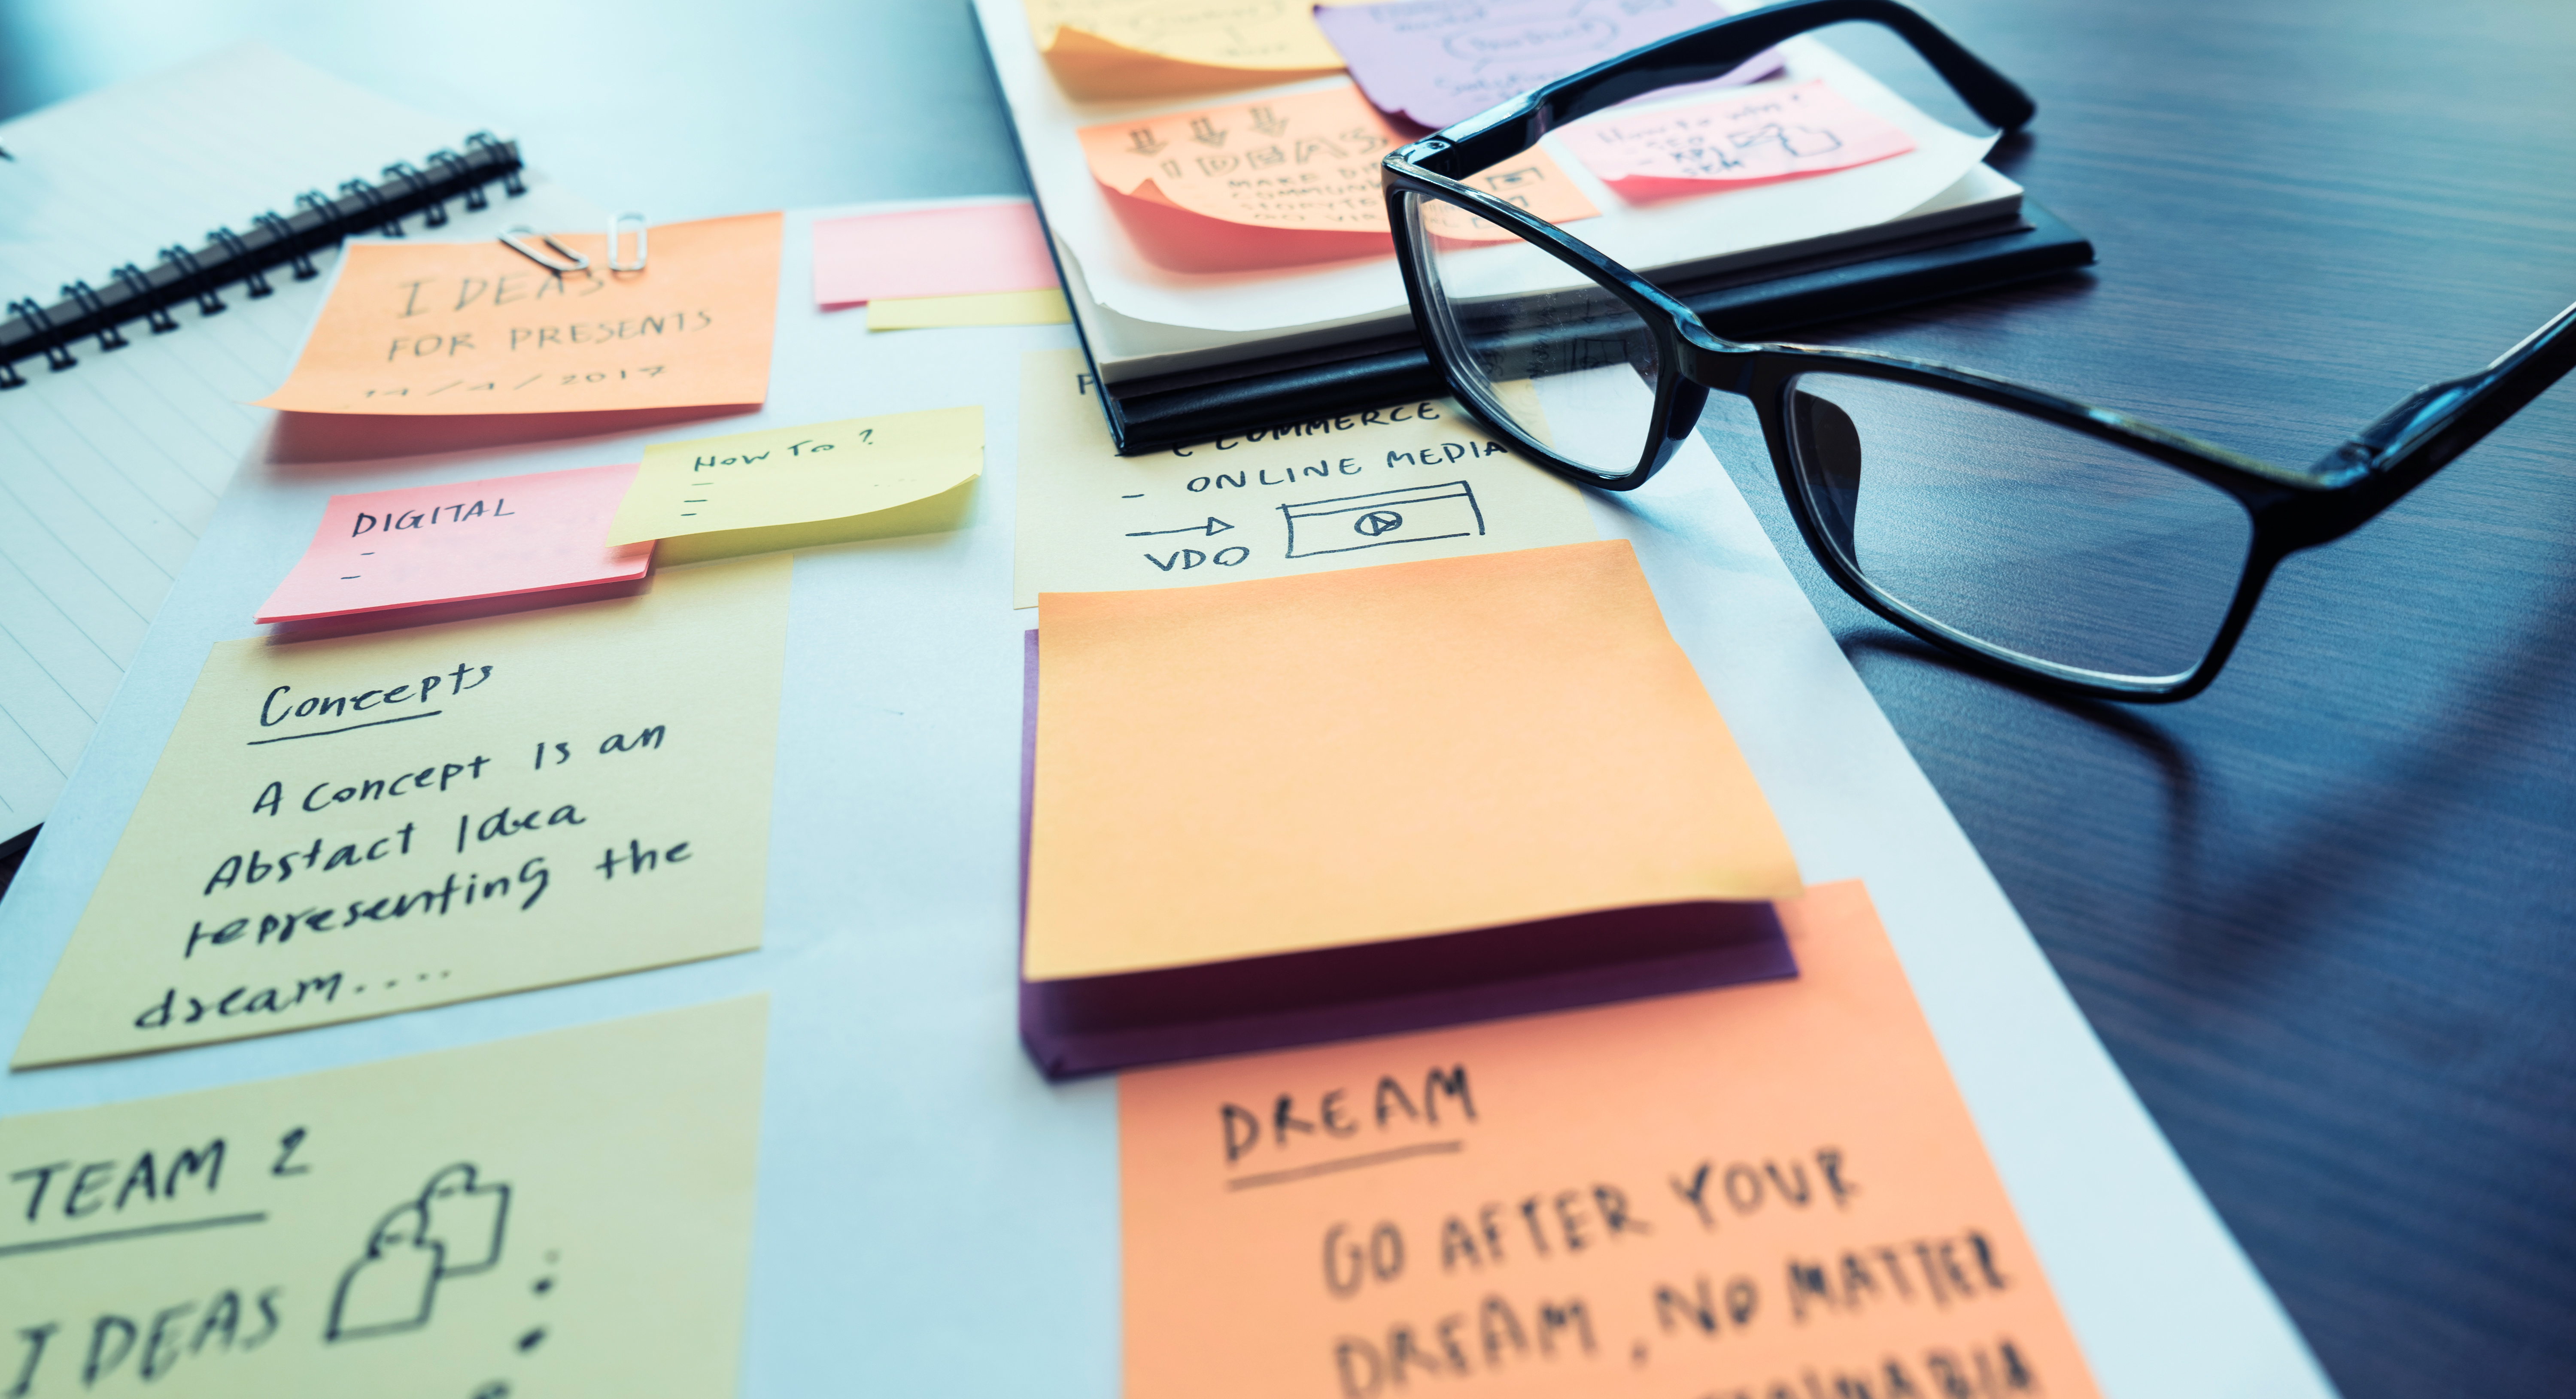 IDEAS
FOR PRESENTS
14/4/2017
How To ?
-
-
-
DIGITAL
-
-
Concepts
A concept is an
Abstact Idea
representing the
dream....
TEAM 2
IDEAS
IDEAS
MAKE
How to why?
- SEO
- E COMMERCE
- ONLINE MEDIA
VDO
DREAM
GO AFTER YOUR
DREAM, NO MATTER